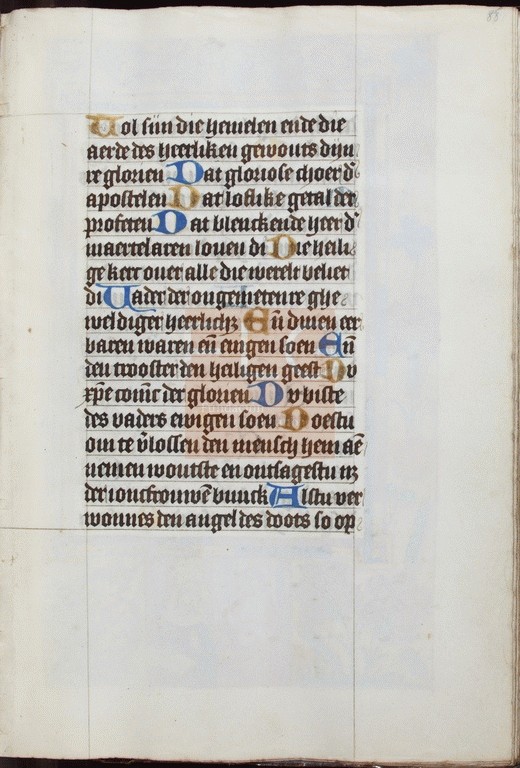 Uol siin die hemelen ende die
aerde des heerliken gewouts dyn
re glorien Dat gloriose choer d̕
apostelen Dat loflike getal der
profeten Dat blenckende heer d̕
maertelaren louen di Die heili
ge kerc ouer alle die werelt beliet
di Uader der ongemetenre ghe
weldiger heerlichz Eñ dinen eer
baren waren eñ eingen soen Eñ
den trooster den heiligen geest Du
xp̄e coninc der glorien Du biste
des vaders ewigen soen Doestu
om te v̕lossen den mensch hem aē
nemen woutste en ontsagestu nz
der ioncfrouwē buuck Alstu ver
wonnes den angel des doots so op